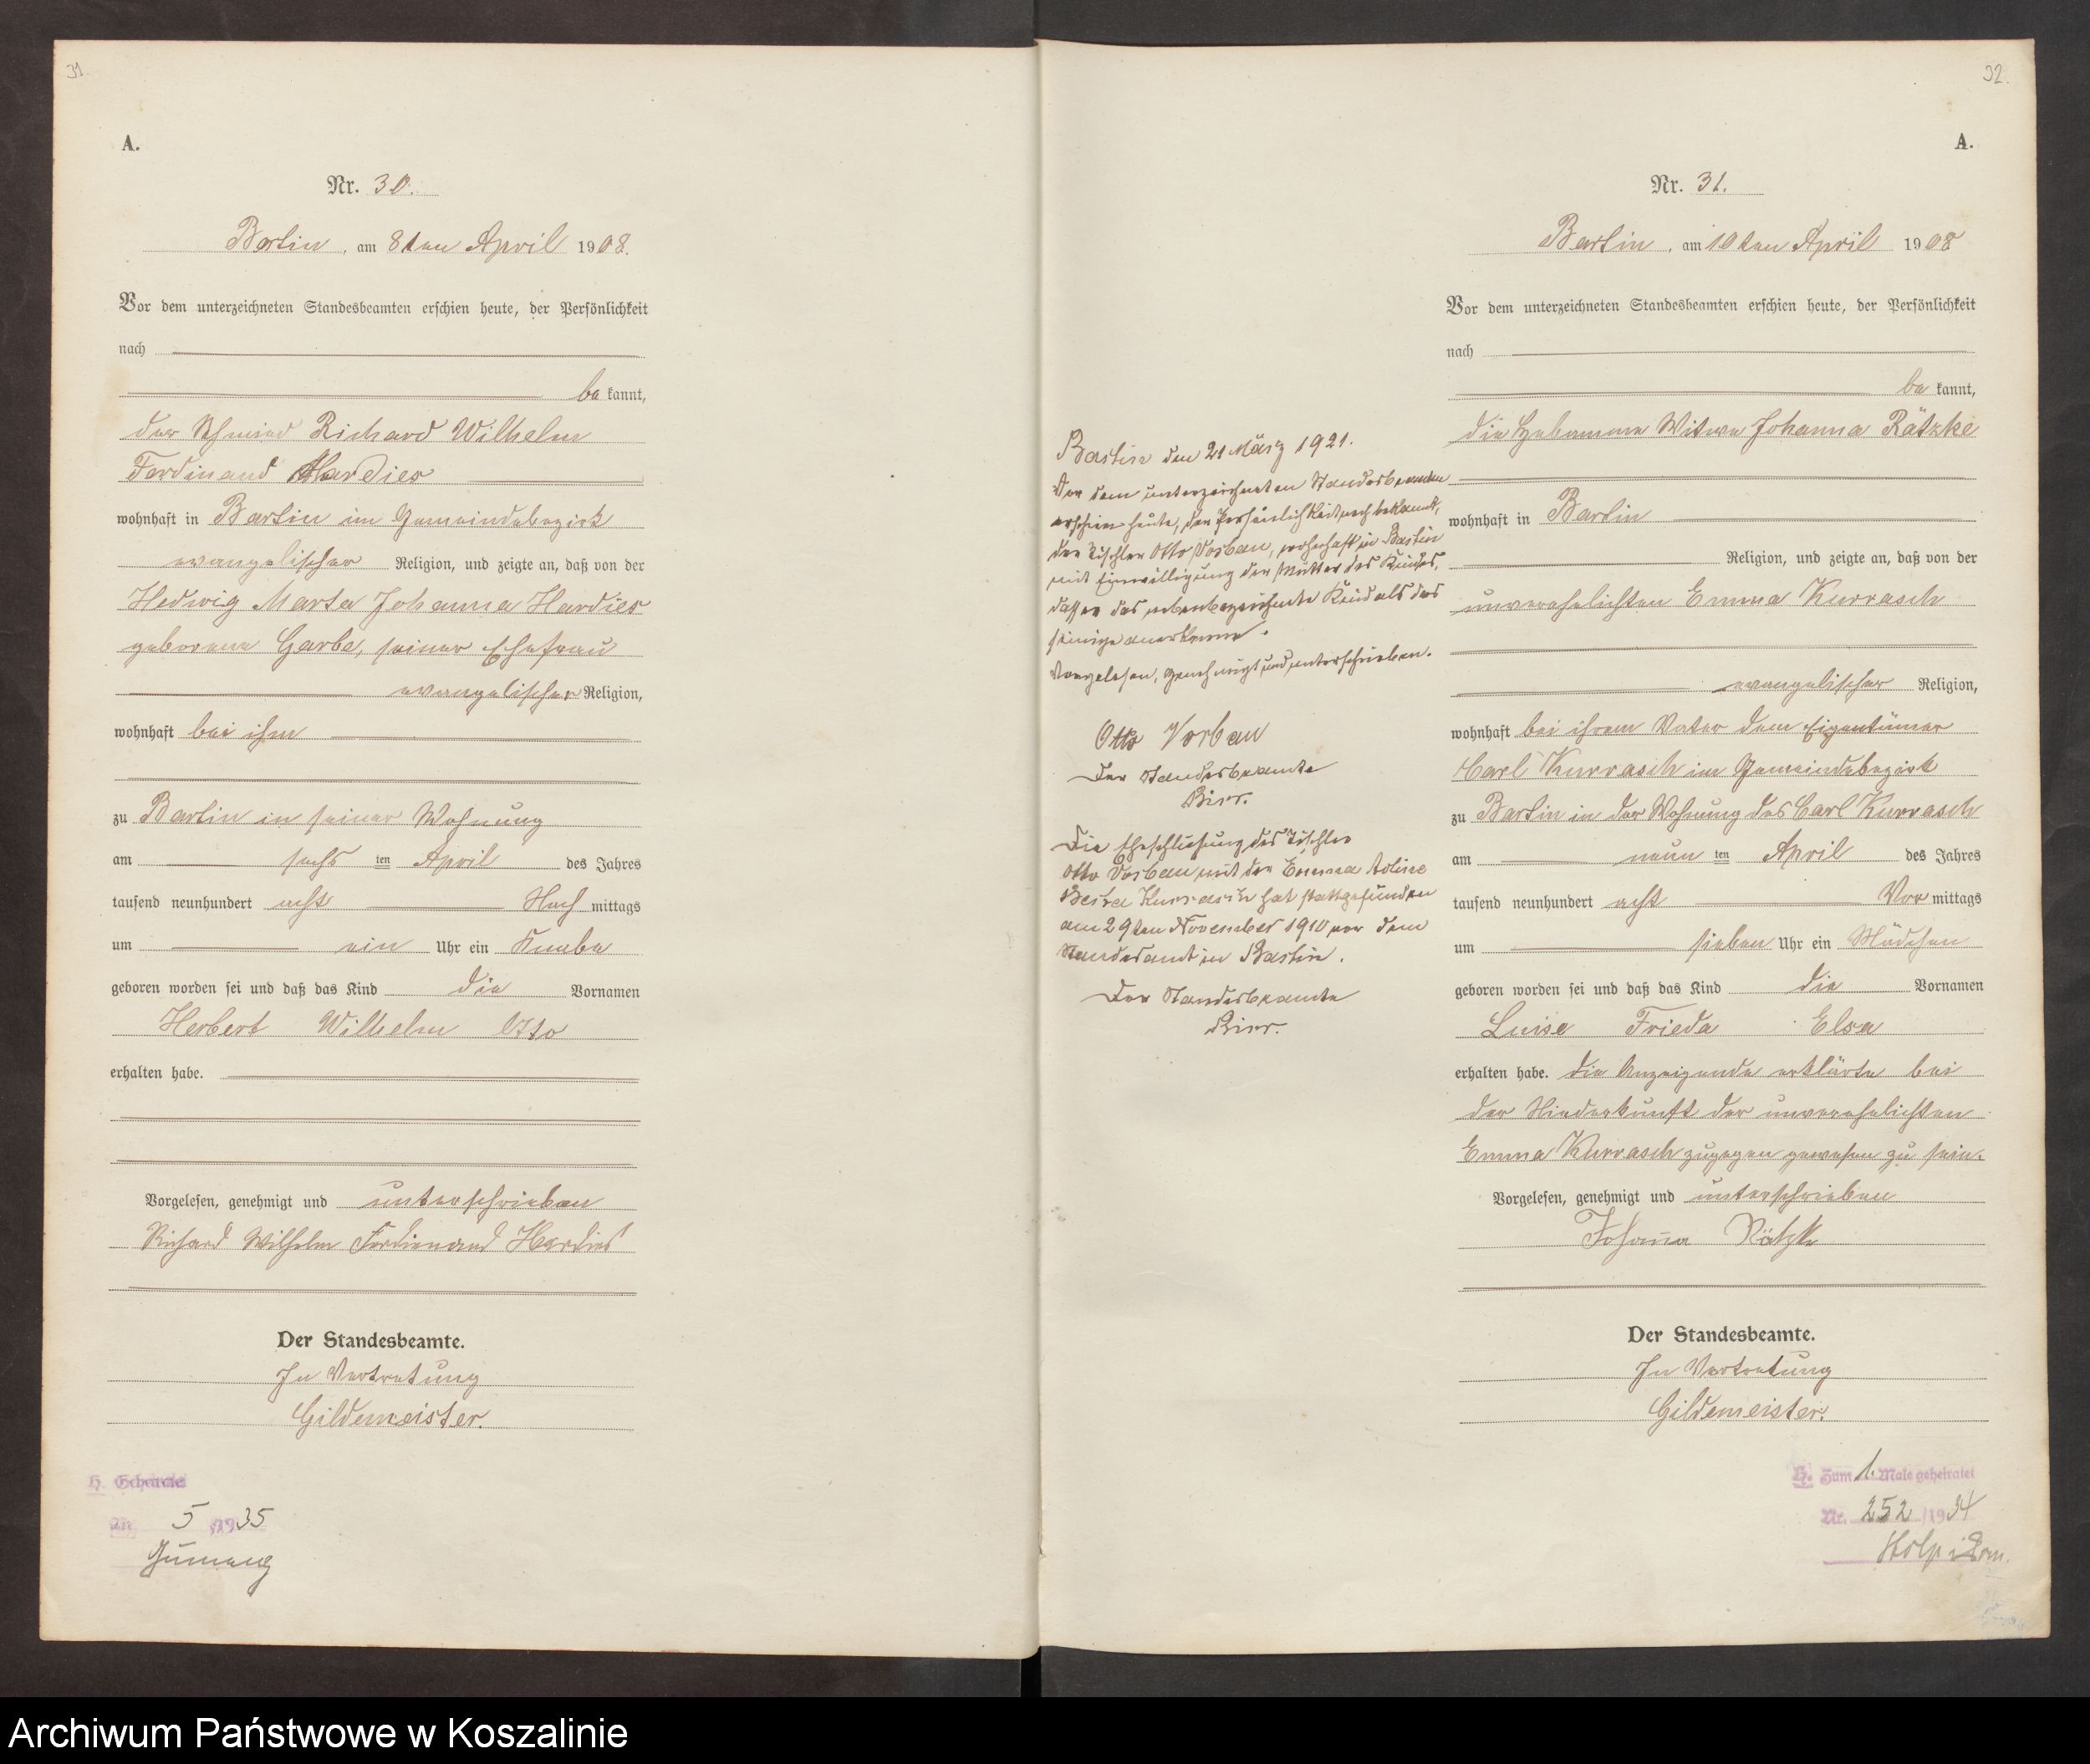 31.
A.
Nr. 30.
Bartin, am 8ten April 1908.
Vor dem unterzeichneten Standesbeamten erschien heute, der Persönlichkeit
nach
be kannt,
der Schmied Richard Wilhelm
Ferdinand Hardies
wohnhaft in Bartin im Gemeindebezirk
evangelischer Religion, und zeigte an, daß von der
Hedwig Marta Johanna Hardies
geborene Garbe, seiner Ehefrau
evangelischer Religion,
wohnhaft bei ihm
zu Bartin in seiner Wohnung
am sechs ten April des Jahres
tausend neunhundert acht Nach mittags
um ein Uhr ein Knabe
geboren worden sei und daß das Kind die Vornamen
Herbert Wilhelm Otto
erhalten habe.
Vorgelesen, genehmigt und unterschrieben
Richard Wilhelm Ferdinand Hardies
Der Standesbeamte.
In Vertretung
Gildemeister.
H.
Nr. 5 1935
32.
A.
Nr. 31.
Bartin, am 10ten April 1908
Vor dem unterzeichneten Standesbeamten erschien heute, der Persönlichkeit
nach
be kannt,
die Hebamme Witwe Johanna Rätzke
wohnhaft in Bartin
Religion, und zeigte an, daß von der
unverehelichten Emma Kurrasch
evangelischer Religion,
wohnhaft bei ihrem Vater dem Eigentümer
Carl Kurrasch im Gemeindebezirk
zu Bartin in der Wohnung des Carl Kurrasch
am neun ten April des Jahres
tausend neunhundert acht Vor mittags
um sieben Uhr ein Mädchen
geboren worden sei und daß das Kind die Vornamen
Luise Frieda Elsa
erhalten habe. Die Anzeigende erklärte bei
der Niederkunft der unverehelichten
Emma Kurrasch zugegen gewesen zu sein.
Vorgelesen, genehmigt und unterschrieben
Johanna Rätzke
Der Standesbeamte.
In Vertretung
Gildemeister.
Bartin den 21 März 1921.
Vor dem unterzeichneten Standesbeamten
erschien heute, der Persönlichkeit nach bekannt,
der Tischler Otto Vorbau, wohnhaft in Bartin
mit Einwilligung der Mutter des Kindes,
daß er das nebenbezeichnete Kind als das
seinige anerkenne.
Vorgelesen, genehmigt und unterschrieben.
Otto Vorbau
Der Standesbeamte
Die Eheschließung des Tischler
Otto Vorbau mit der Emma
Berta Kurrasch hat stattgefunden
am 29ten November 1910 vor dem
Standesamt in Bartin.
Der Standesbeamte
H. Zum 1. Male geheiratet
Nr. 252 /1934
Archiwum Państwowe w Koszalinie